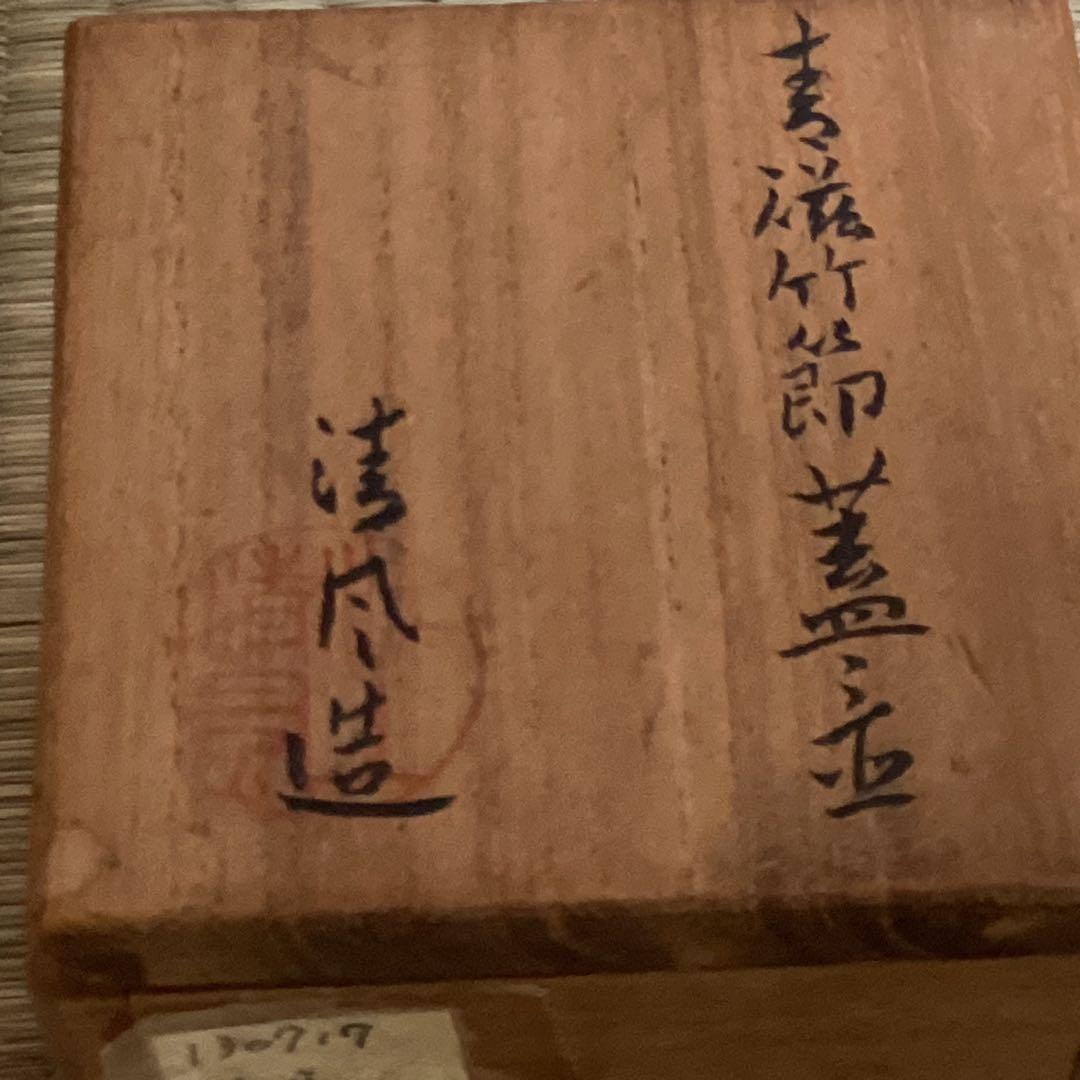 青磁竹節蓋置
清風造
130717